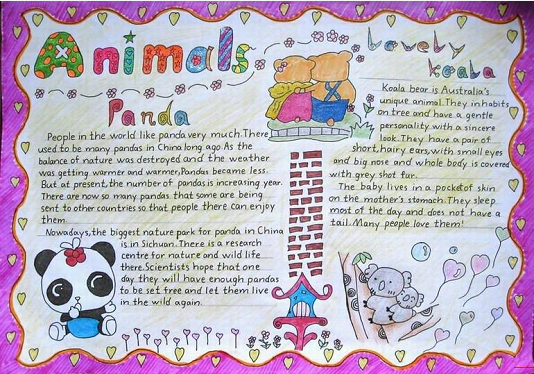 Animals
Panda
People in the world like panda very much. There
used to be many pandas in China long ago. As the
balance of nature was destroyed and the weather
was getting warmer and warmer, Pandas became less.
But at present, the number of pandas is increasing year.
There are now so many pandas that some are being
sent to other countries so that people there can enjoy
them.
Nowadays, the biggest nature park for panda in China
is in Sichuan. There is a research
centre for nature and wild life
there. Scientists hope that one
day they will have enough pandas
to be set free and let them live
in the wild again.
Lovely
koala
Koala bear is Australia's
unique animal. They inhabits
on tree and have a gentle
personality with a sincere
look. They have a pair of
short, hairy ears, with small eyes
and big nose and whole body is covered
with grey shot fur.
The baby lives in a pocket of skin
on the mother's stomach. They sleep
most of the day and does not have a
tail. Many people love them!